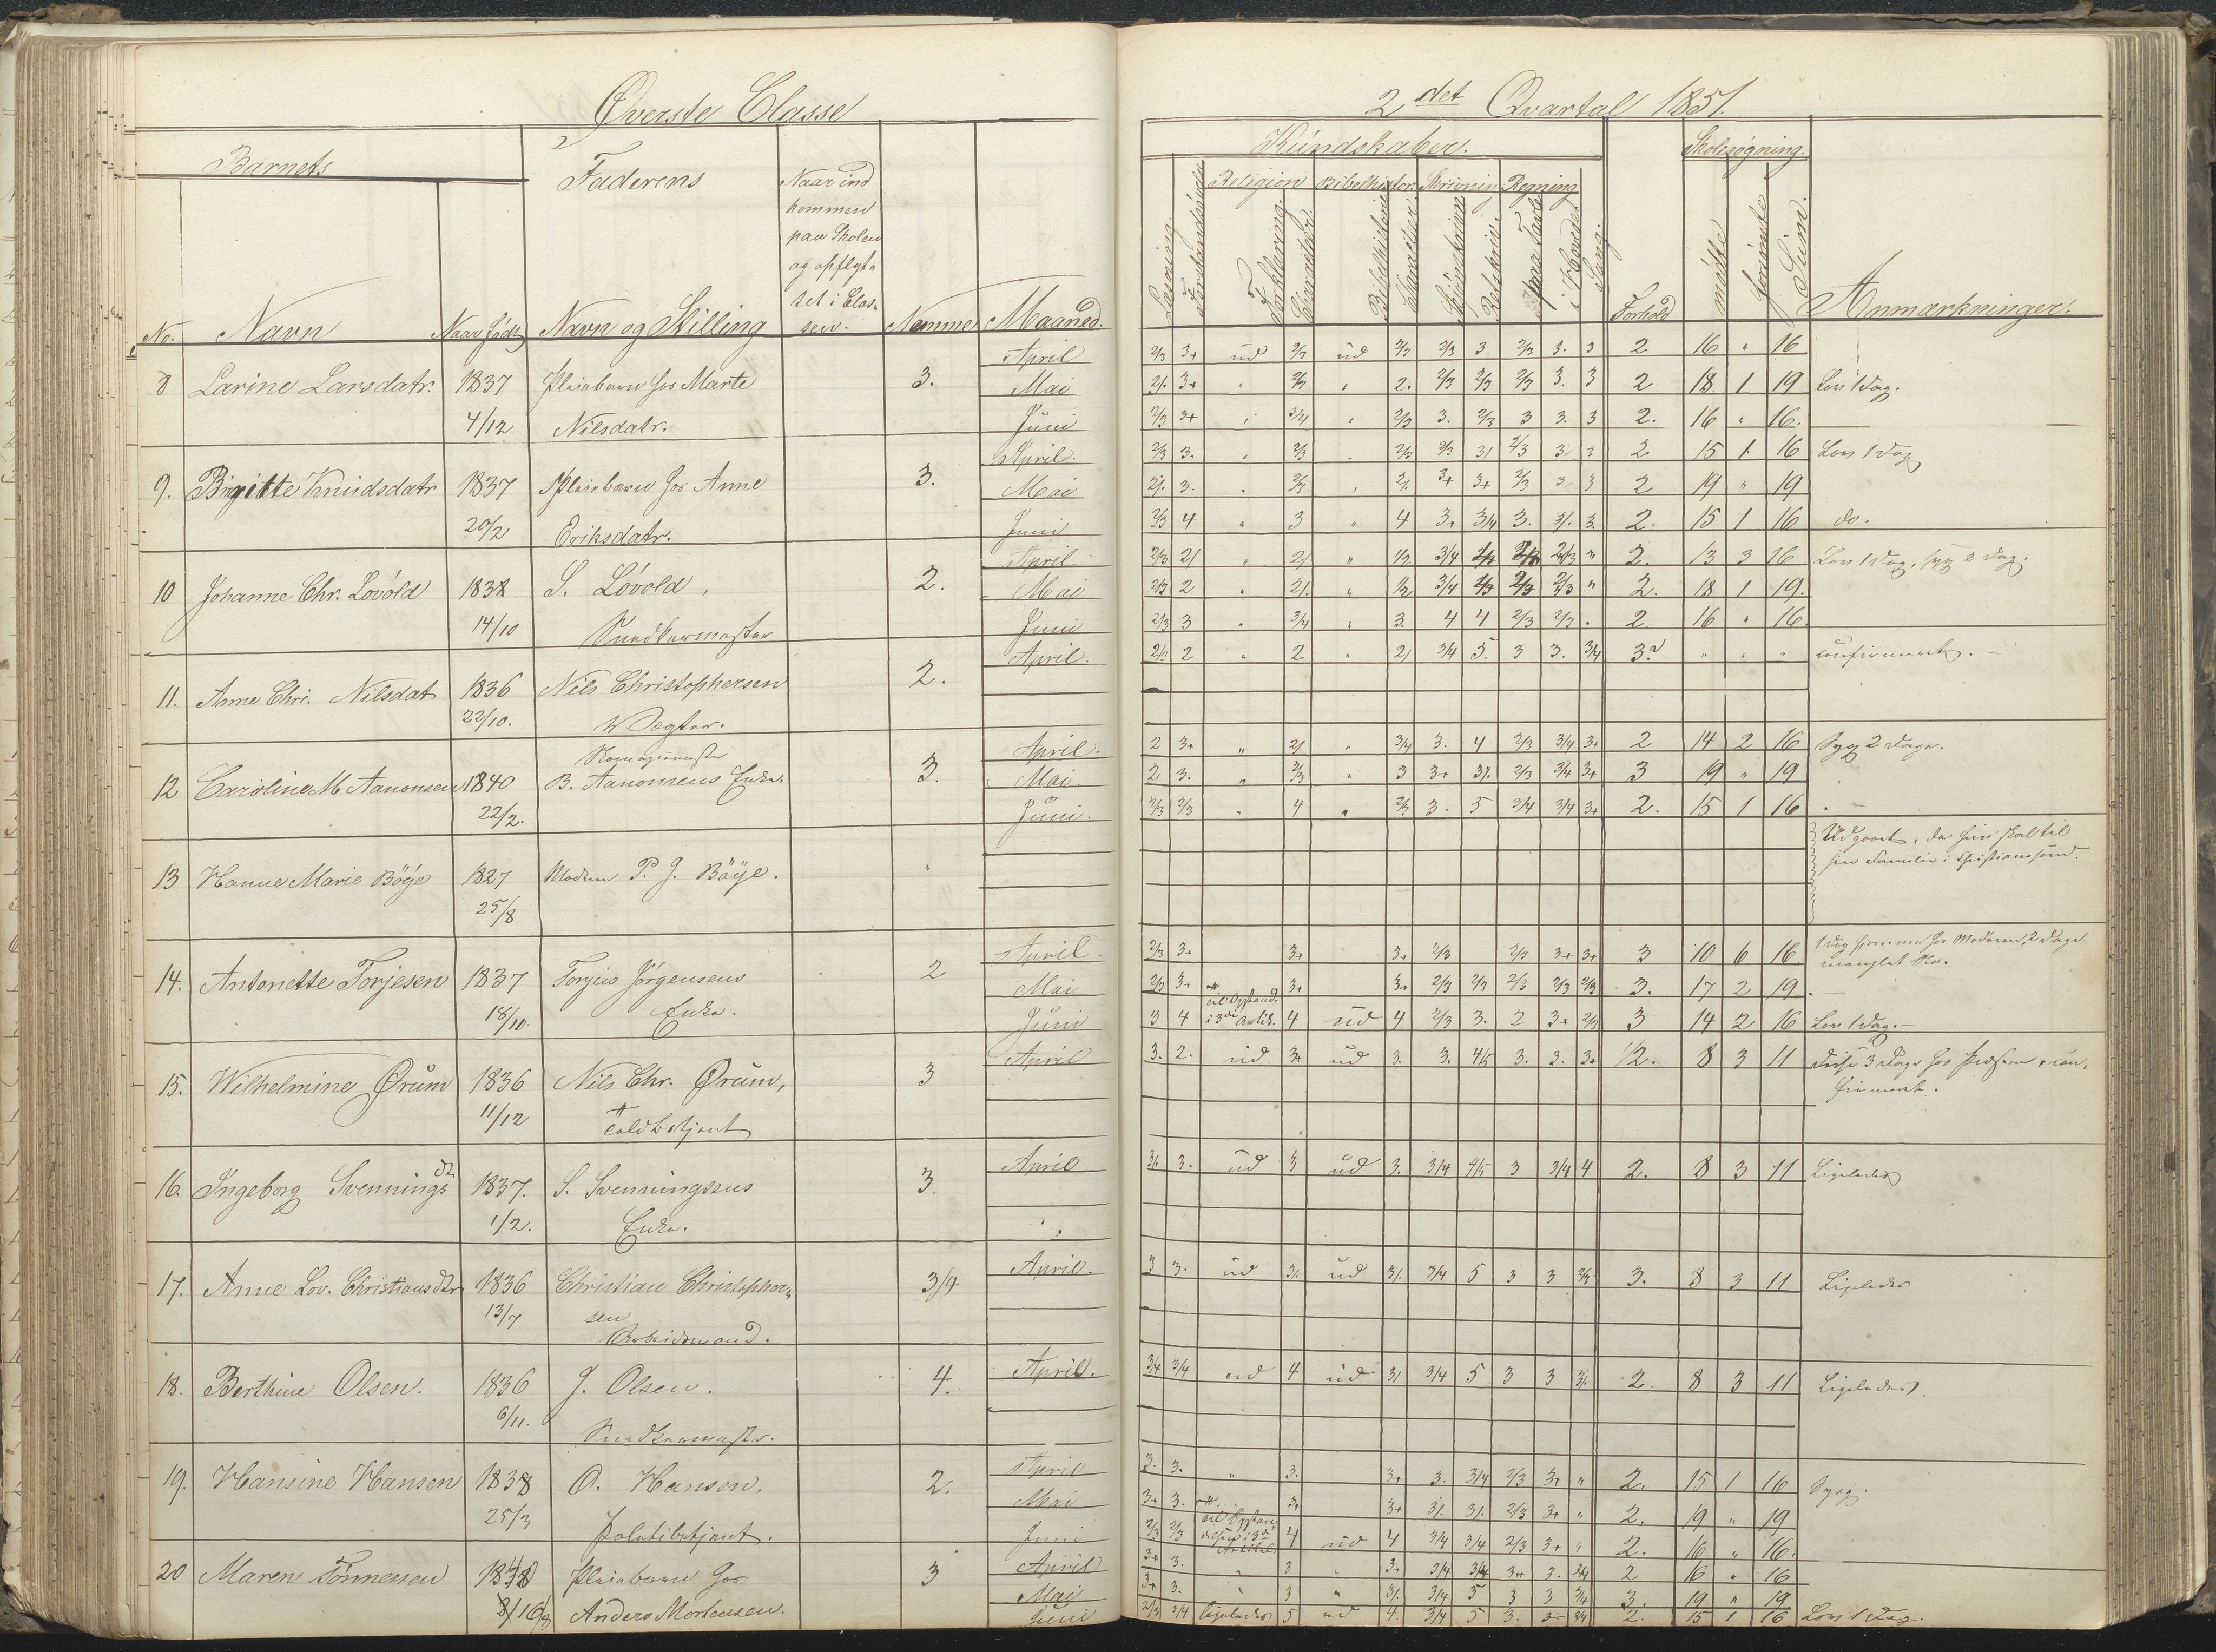 Øverste Classe
Barnets
Faderens
Naar ind
kommen
paa Skolen
og opflyt„
tet i Clas„
sen.
No. Navn Naar født Navn og Stilling Nemme Maaned.
8 Larine Larsdatr. 1837 Pleiebarn hos Marte 3. April
Mai
4/12 Nilsdatr. Juni
9. Birgitte Knudsdatr 1837 Pleiebarn hos Anne 3. April.
Mai
20/2 Eriksdatr. Juni
10 Johanne Chr. Lovold 1838 S. Lovold, 2. April
Mai
14/10 Snedkermester Juni
11. Anne Chri. Nilsdat 1836 Nils Christophersen 2. April.
22/10. Vægter.
12 Caroline M Aanonsen 1840 B. Aanonsens Enke. 3. April.
Mai.
22/2. Juni.
13 Hanne Marie Böge 1827 Madem P. J. Böye.
25/8
14. Antonette Torjesen 1837 Torjus Jörgensens 2 April.
Mai
18/10. Enke. Juni
15. Wilhelmine Ørum 1836 Nils Chr. Ørum, 3 April
11/12 Toldbetjent
16. Ingeborg Svennings dtr 1837. S. Svenningsens 3. April
1/2. Enke.
17. Anne Lov. Christiansdtr 1836 Christian Christopher„ 3/4 April.
13/7 sen
Arbeidsmand.
18. Berthine Olsen. 1836 J. Olsen. 4. April.
6/11. Snedkermester.
19. Hansine Hansen 1838 O. Hansen. 2. April
Mai
25/3 Politibetjent. Juni
20 Maren Tönnessen Pleiebarn hos 3 April
Mai
Anders Mortensen. Juni
2det Qvartal 1851.
Kundskaber. Skolesøgning.
Religion Bibelhistor. Skrivnin Regning
Læsning. Forstandsøvelse Forklaring. Bibelhistorie Retskriv. paa Tavle i Hovedet Sang. Forhold mødte forsømte Sum. Anmærkninger.
2/3 3+ ud 2/3 ud 2/3 2/3 3 2/3 3. 3 2 16 „ 16
2/. 3+ „ 2/3 „ 2. 2/3 2/3 2/3 3. 3 2 18 1 19 Lov 1 Dag.
2/3 3+ „ 3/4 „ 2/3 3. 2/3 3 3. 3 2. 16 „ 16.
2/3 3. „ 2/3 „ 2/3 2/3 3/ 2/3 3 3 2 15 1 16 Lov 1 Dag
2/. 3. „ 2/3 „ 2/. 3+ 3+ 2/3 3 3 2 19 „ 19
2/3 4 „ 3 „ 4 3+ 3/4 3. 3/. 3. 2. 15 1 16 do.
2/3 2/ „ 2/ „ 1/2 3/4 2/3 2/3 „ 2. 13 3 16 Lov 1 Dag, syg 2 Dag.
2/3 2 „ 2/. „ 1/2 3/4 2/3 2/3 2/3 „ 2. 18 1 19.
2/3 3 „ 3/4 „ 3 4 4 2/3 2/3 „ 2. 16 „ 16.
2/3 2 „ 2 „ 2/ 3/4 5. 3 3. 3/4 „ „ „ confirmeret.
2 3+ „ 2/ „ 3/4 3. 4 2/3 3/4 3+ 2 14 2 16 Syg 2 Dage.
2. 3. „ 2/3 „ 3 3+ 3/. 2/3 3/4 3+ 3 19 „ 19
2/3 2/3 „ 4 „ 2/3 3. 5 3/4 3/4 3+ 2. 15 1 16
Udgaaet, da hun skal til
sin Familie i Christianssund.
2/3 3+ 3+ 3+ 2/3 2/3 3+ 3+ 3 10 6 16 1 Dag hjemme hos Moderen, 2 Dage
manglet Sko.
2/3 3+ 3+ 3+ 2/3 2/3 2/3 2/3 2/3 3. 17 2 19
3 4 i 3die Artik. 4 ud 4 2/3 3. 2 3+ 2/3 3 14 2 16 Lov 1 Dag.
3. 2. ud 3+ ud 3. 3. 4/5 3. 3. 3+ 1/2. 8 3 11 Disse 3 Dage hos Præsten, con„
firmeret.
3/. 3. ud 3 ud 3. 3/4 4/5 3 3/4 4 2. 8 3 11 Ligeledes
3 3. ud 3/. ud 3/. 3/4 5 3 3 2/3 3. 8 3 11 Ligeledes
3/4 3/4 ud 4 ud 3/ 3/4 5 3 3 3/. 2. 8 3 11 Ligeledes.
3. 3. „ 3. 3+ 3. 3/4 2/3 3+ „ 2. 15 1 16 Syg.
3+ 3. 3+ 3+ 3/. 3/. 2/3 3+ „ 2. 19 „ 19
2/3 2/3 4 ud 4 3/4 3/4 2/3 3+ „ 2. 16 „ 16.
3+ 3. „ 3 „ 3+ 3/4 3/4 3+ 3. 3/4 2 16 „ 16
3+ 3. „ 3 „ 3/. 3/4 5 3 3 3/4 3. 19 „ 19
2/3 3/4 Ligeledes 5 ud 4 3/4 5 3. 3/4 2. 15 1 16 Lov 1 Dag.